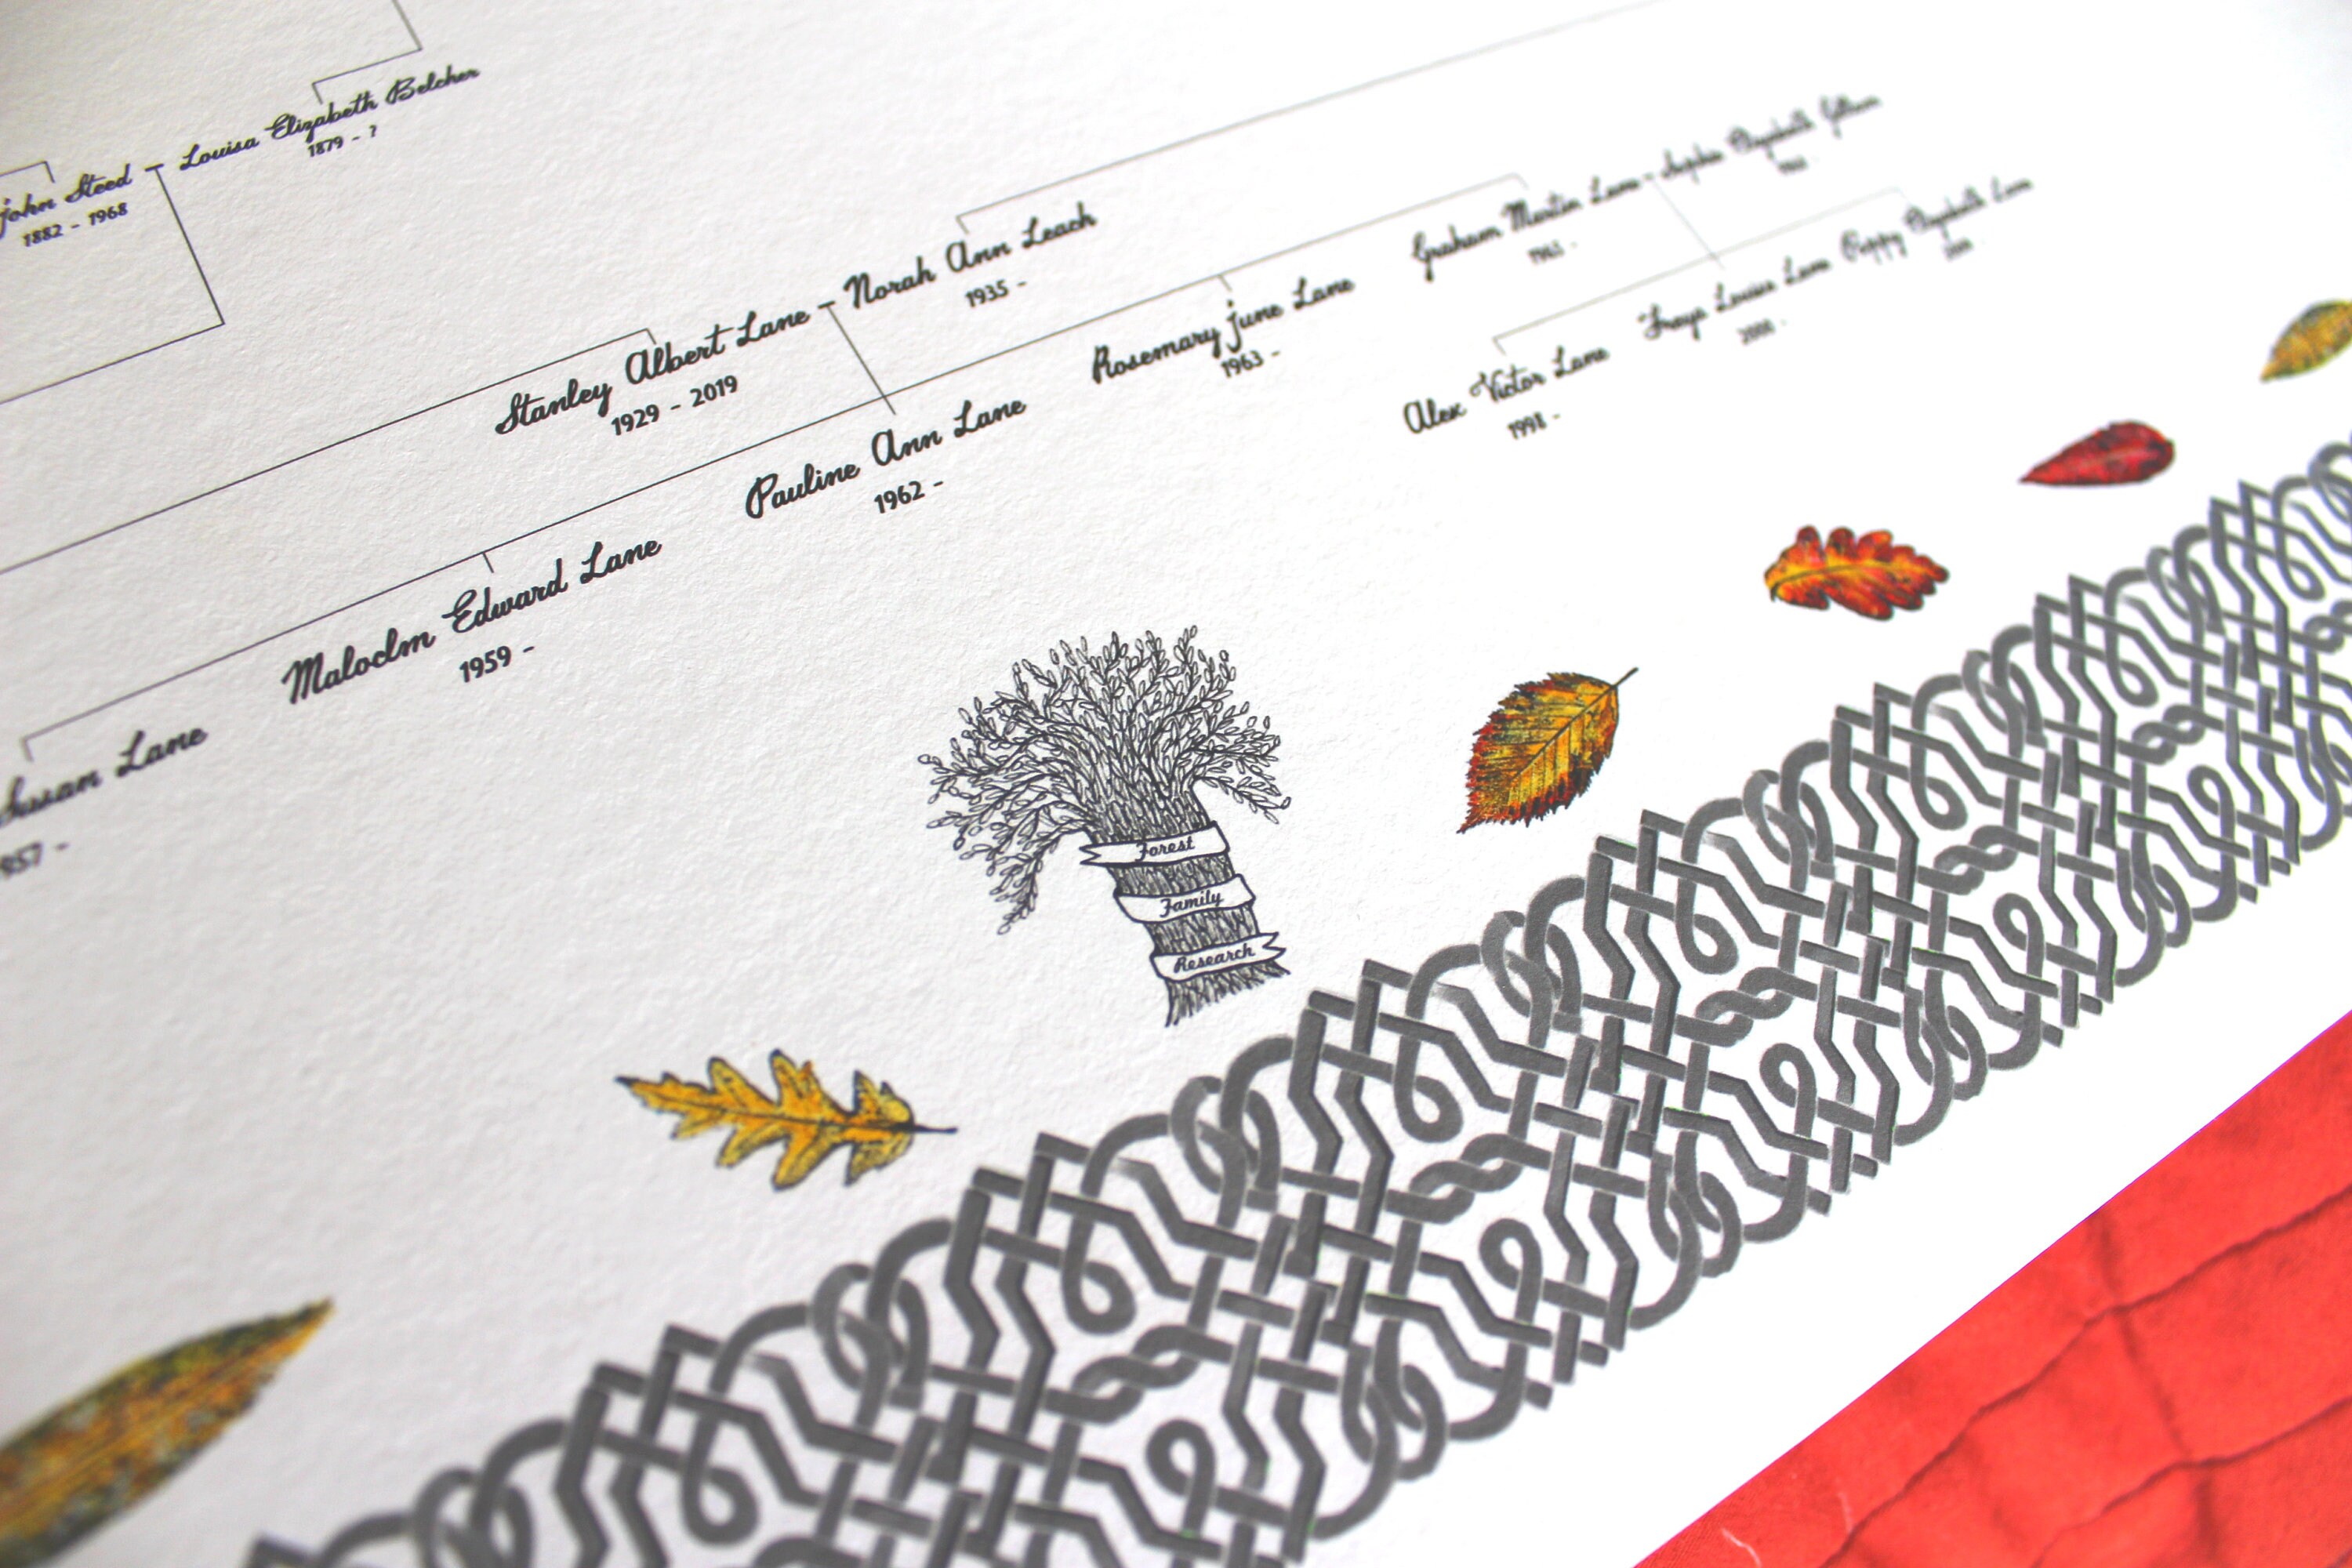 Louisa Elizabeth Belcher
1879 - ?
John Steed
1882 - 1968
Norah Ann Leach
1935 -
Stanley Albert Lane
1929 - 2019
Graham Martin Lane
Rosemary June Lane
1963 -
Pauline Ann Lane
1962 -
Maloclm Edward Lane
1959 -
Susan Lane
957 -
Alex Victor Lane
1998 -
Freya Louise Lane
2000 -
Poppy Elizabeth Lane
Forest
Family
Research